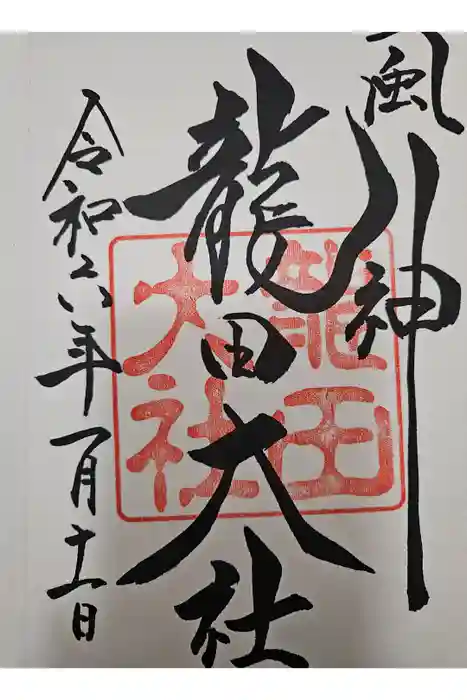 風神
龍田大社
龍田大社
令和六年一月十一日